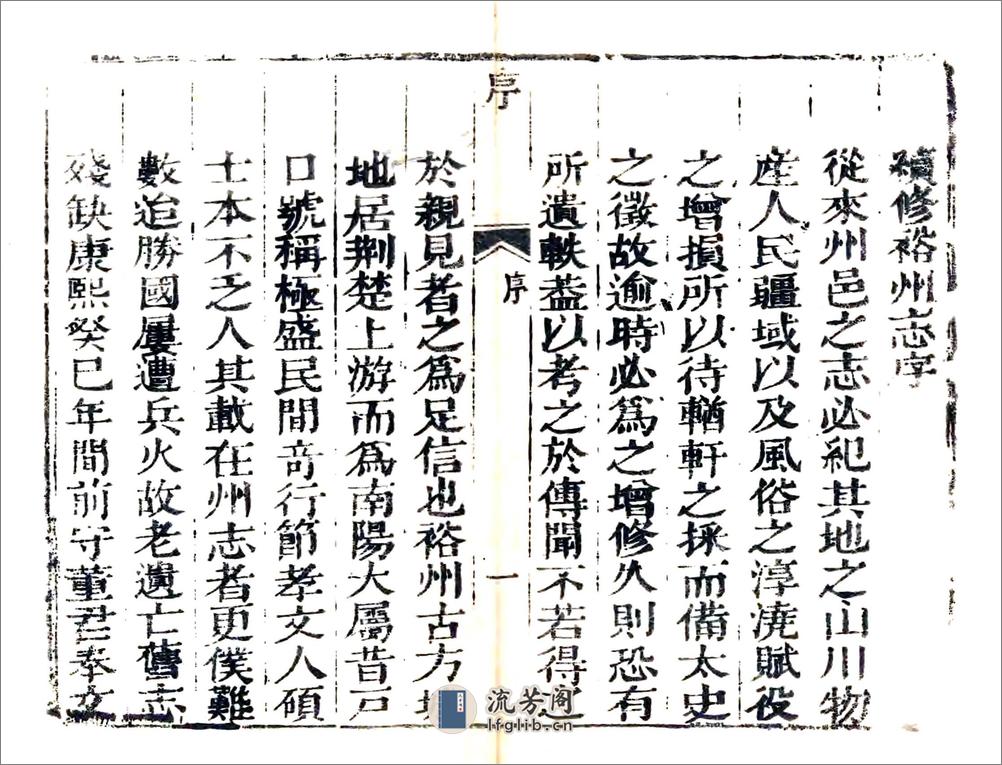 續修裕州志序
從來州邑之志必紀其地之山川物
産人民疆域以及風俗之淳澆賦役
之增損所以待輶軒之採而備太史
之徵故逾時必爲之增修久則恐有
所遺軼葢以考之於傳聞不若得之
序
序
一
於親見者之爲足信也裕州古方城
地居荆楚上游而爲南陽大屬昔戸
口號稱極盛民間奇行節孝文人碩
士本不乏人其載在州志者更僕難
數迨勝國屢遭兵火故老遺亡舊志
殘缺康熙癸巳年間前守董君奉文
流芳阁
lfglib.cn